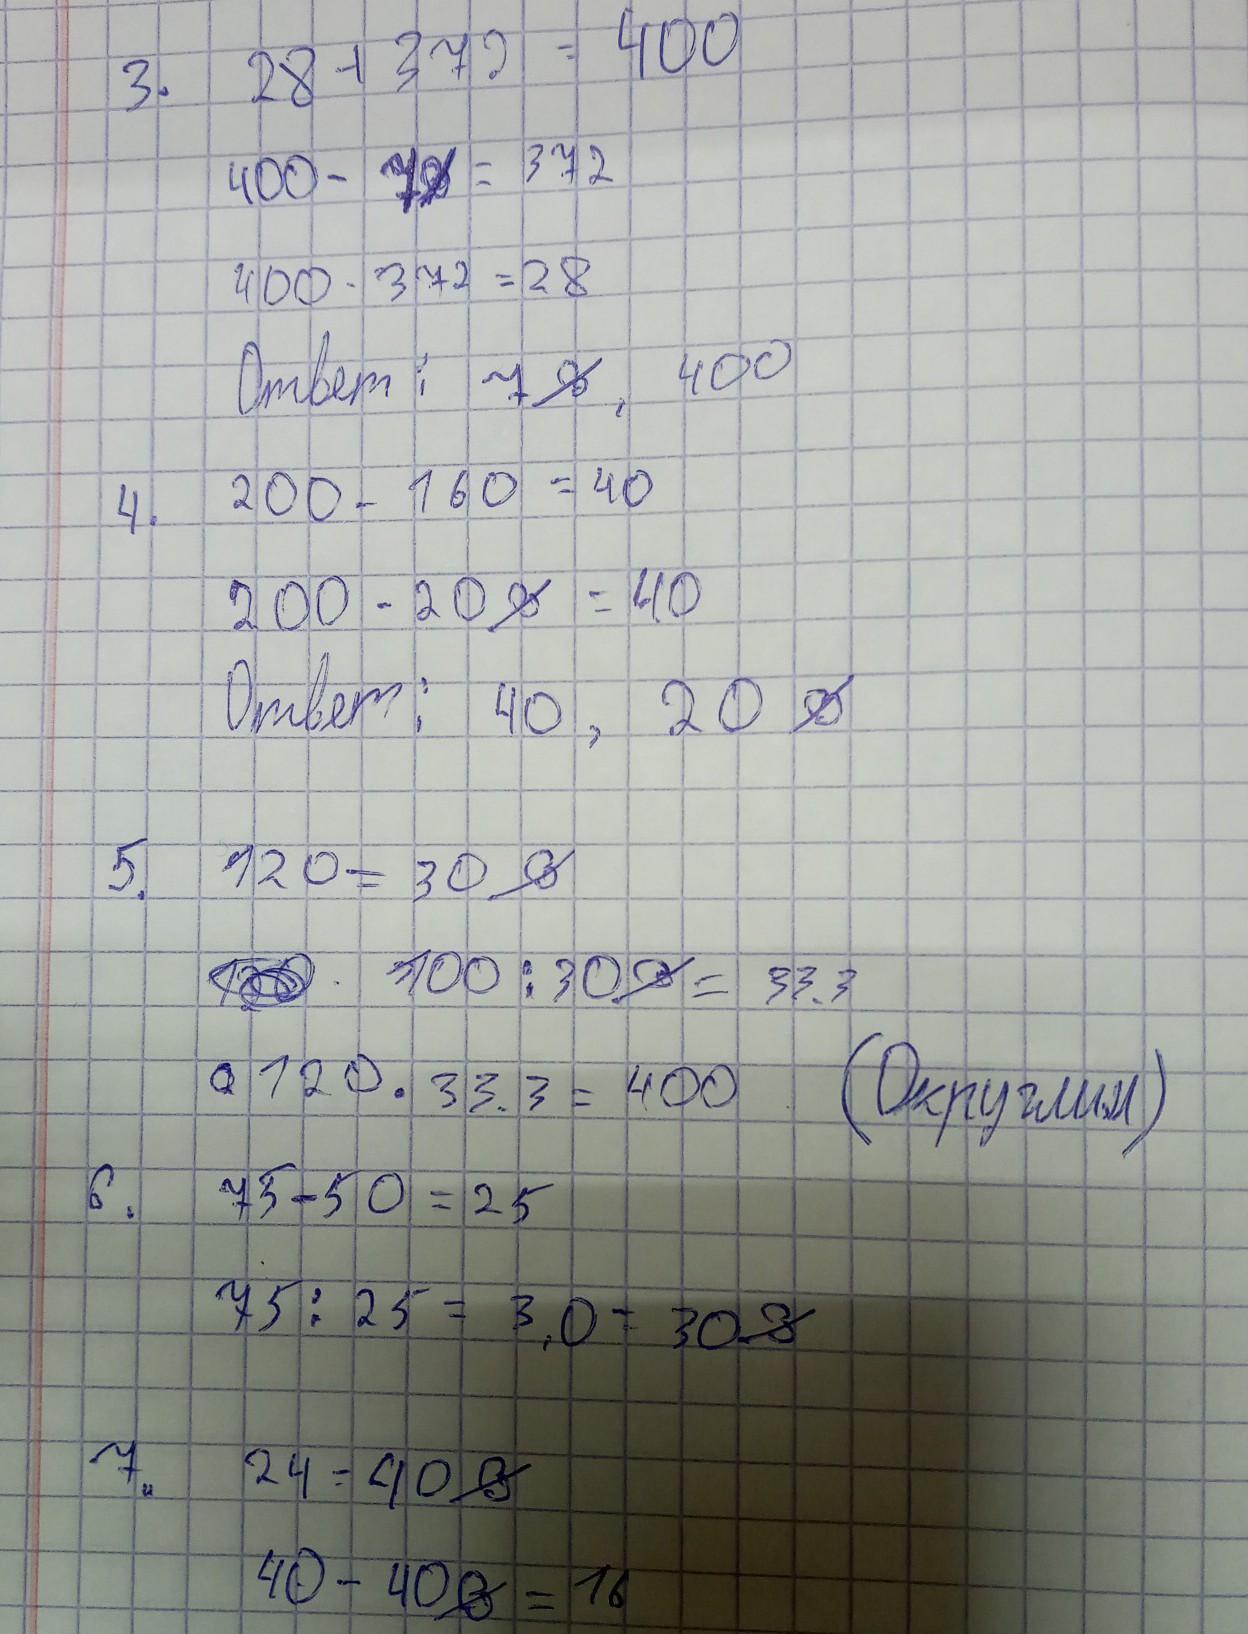 3. 28 + 372 = 400
400 - 7% = 372
400 - 372 = 28
Ответ: 7%, 400
4. 200 - 160 = 40
200 - 20% = 40
Ответ: 40, 20%
5. 120 = 30%
100 : 30% = 33.3
120 · 33.3 = 400 (Округлим)
6. 75 - 50 = 25
75 : 25 = 3,0 = 30%
7. 24 = 40%
40 - 40% = 16